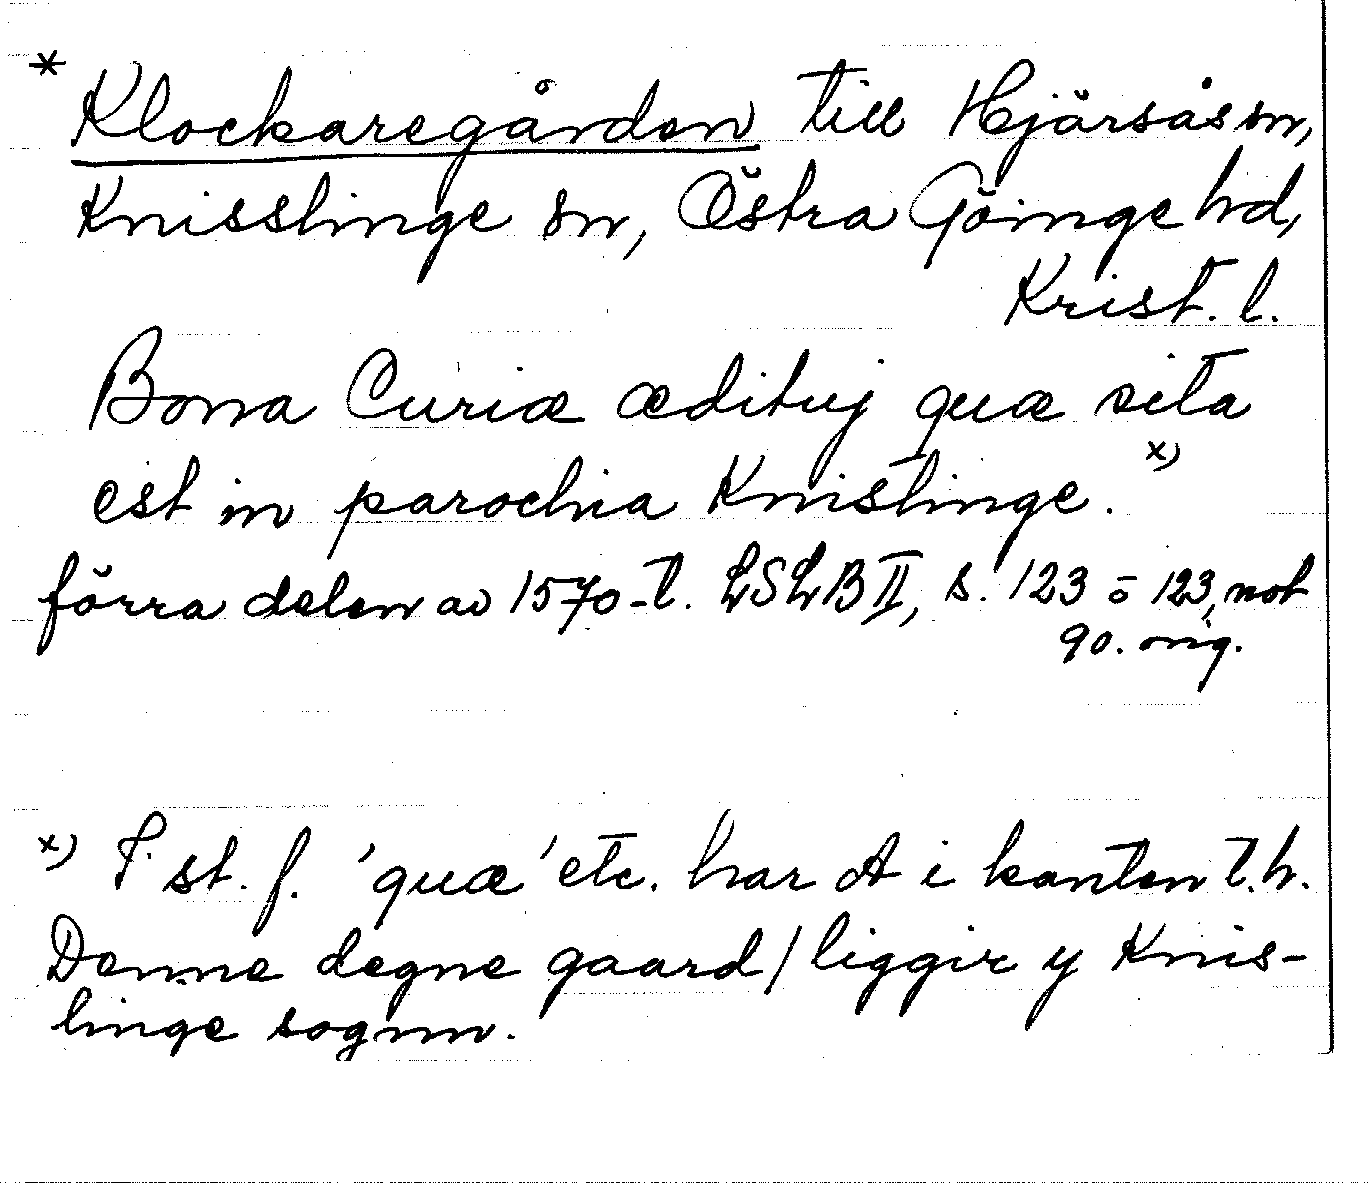 * Klockaregården till Hjärsås sn,
Knisslinge sn, Östra Göinge hd,
Krist. l.
Bona Curiæ ædituj quæ sita
est in parochia Knislinge. x)
förra delen av 1570-t. LSLB II, s. 123 o 123, not
90. orig.
x) I st. f. 'quæ' etc. har A i kanten t.h.
Denne degne gaard / liggir y Knis-
linge sognn.